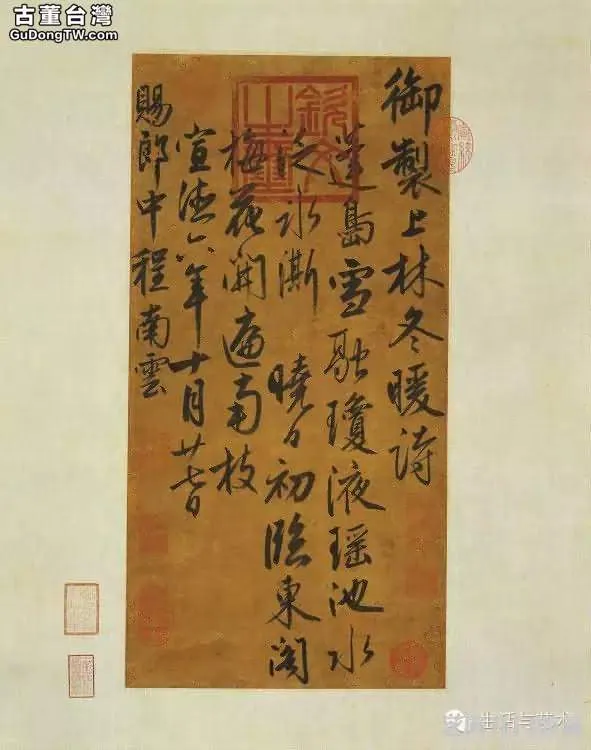 古董台灣
GuDongTW.com
御製上林冬暖詩
蓬島雪融瓊液瑶池水
泛冰澌 曉日初臨東閣
梅花開遍南枝
宣德六年十月廿七日
賜郎中程南雲
欽文之璽
生活与艺术